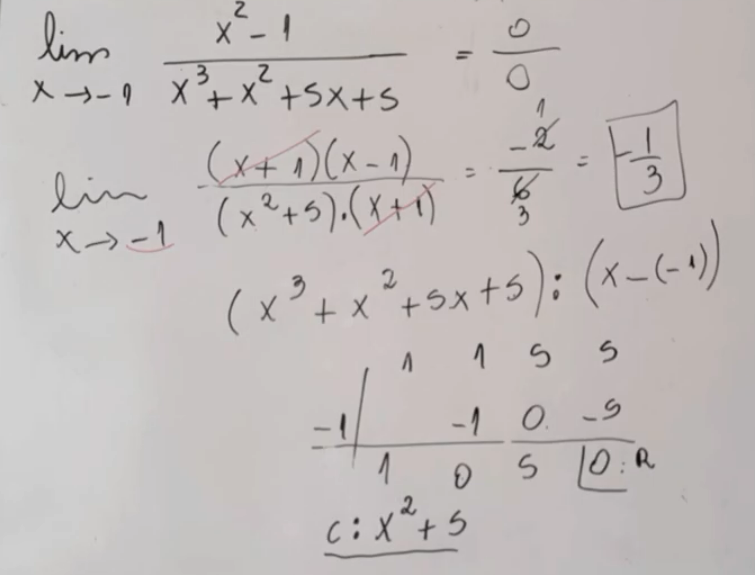 lim x→-1 (x² - 1)/(x³ + x² + 5x + 5) = 0/0
lim x→-1 (x + 1)(x - 1)/((x² + 5).(x + 1)) = -2/6 1 3 = -1/3
(x³ + x² + 5x + 5) : (x - (-1))
1 1 5 5
-1 -1 0. -5
1 0 5 0 : R
C : x² + 5